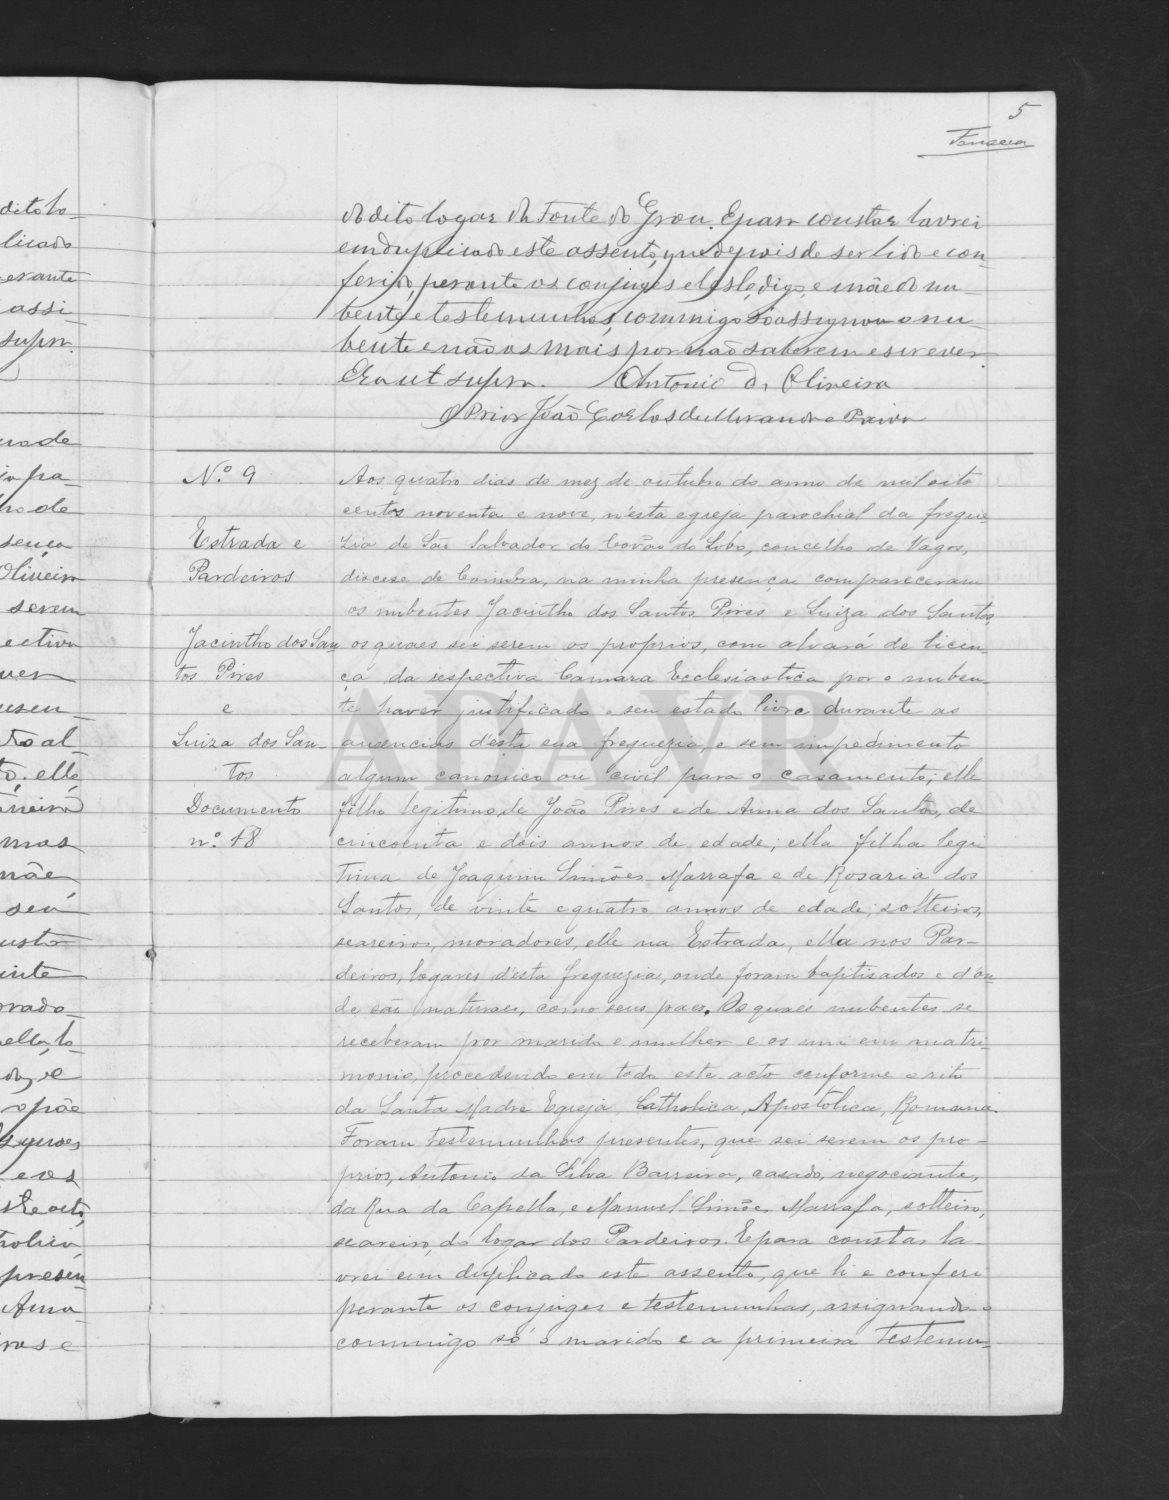 5
Fonseca
do dito logar da Fonte do Grou. E para constar lavrei
em duplicado este assento, que depois de ser lido e con-
ferido, perante os conjuges e digo, e mãe do nu-
bente e testemunhas, commigo só assignou o nu-
bente e não os mais por não saberem escrever.
Era ut supra. Antonio d' Oliveira
O Prior João Carlos de Miranda e Paiva
N.º 9
Estrada e
Pardeiros
Jacintho dos San-
tos Pires
e
Luiza dos San-
tos
Documento
n.º 18
Aos quatro dias do mez de outubro do anno de mil oito
centos noventa e nove, n'esta egreja parochial da fregue-
zia de São Salvador do Covão do Lobo, concelho de Vagos,
diocese de Coimbra, na minha presença compareceram
os nubentes Jacintho dos Santos Pires e Luiza dos Santos,
os quaes sei serem os proprios, com alvará de licen-
ça da respectiva Camara Ecclesiastica por o nuben-
te haver justificado o seu estado livre durante as
ausencias d'esta sua freguezia, e sem impedimento
algum canonico ou civil para o casamento; elle
filho legitimo de João Pires e de Anna dos Santos, de
cincoenta e dois annos de edade; ella filha legi
tima de Joaquim Simões Marrafa e de Rosaria dos
Santos, de vinte e quatro annos de edade; solteiros,
seareiros, moradores, elle na Estrada, ella nos Par-
deiros, logares d'esta freguezia, onde foram baptisados e d'on-
de são naturaes, como seus paes. Os quaes nubentes se
receberam por marido e mulher e os uni em matri-
monio, procedendo em todo este acto conforme o rito
da Santa Madre Egreja Catholica, Apostolica, Romana.
Foram testemunhas presentes, que sei serem os pro-
prios, Antonio da Silva Barreira, casado, negociante,
da Rua da Capella, e Manuel Simões Marrafa, solteiro,
seareiro, do logar dos Pardeiros. E para constar la-
vrei em duplicado este assento, que li e conferi
perante os conjuges e testemunhas, assignando
commigo só o marido e a primeira testemu-
ADAVR